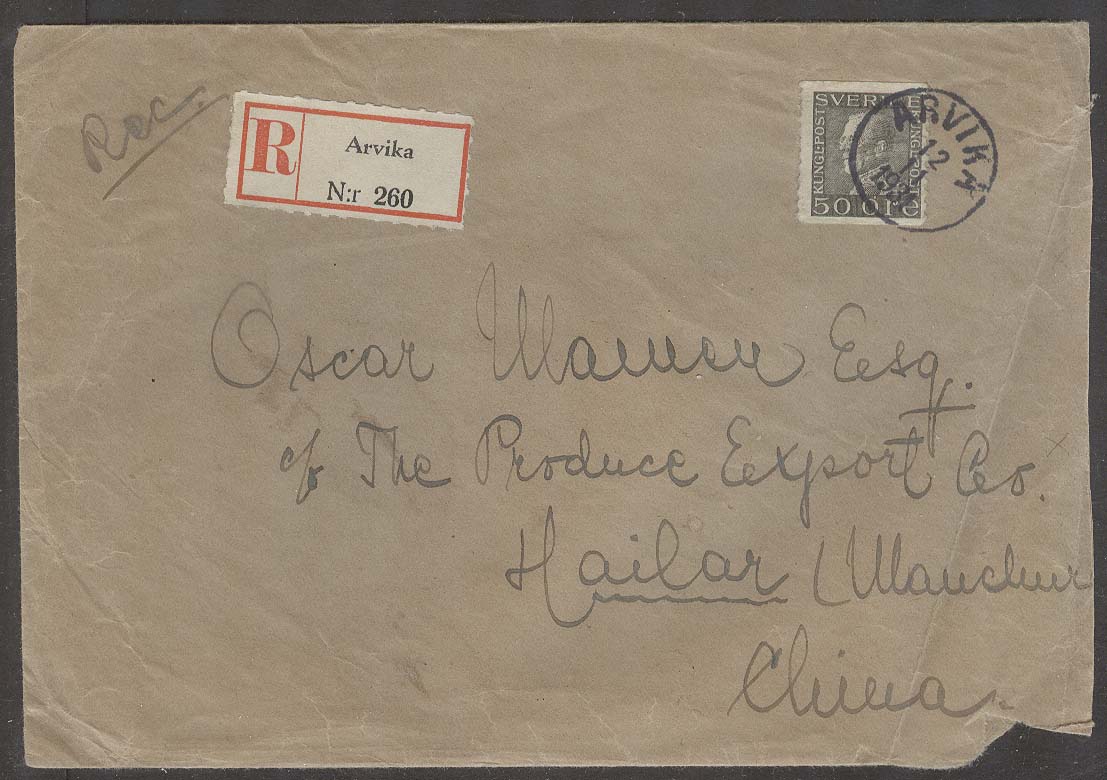 Rec.
R
Arvika
N:r 260
SVERIGE
KUNGL·POST
50 ÖRE
ARVIKA
12
Oscar Mamen Esq.
c/o The Produce Export Co.
Hailar (Manchur
China.